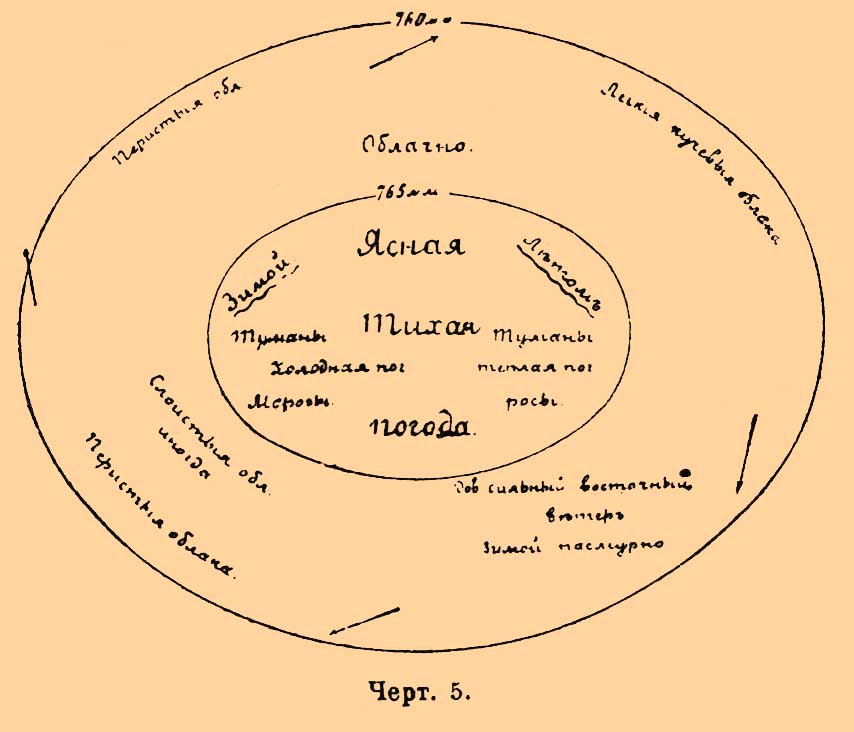 760 мм
Перистыя обл.
Легкія кучевыя облака
Облачно.
765 мм
Ясная
Зимой
Лѣтомъ
Тихая
Туманы
Туманы
Холодная пог
теплая пог
Морозы.
росы.
погода.
Слоистыя обл.
иногда
Перистыя облака.
Дов сильный восточный
вѣтеръ
Зимой пасмурно
Черт. 5.